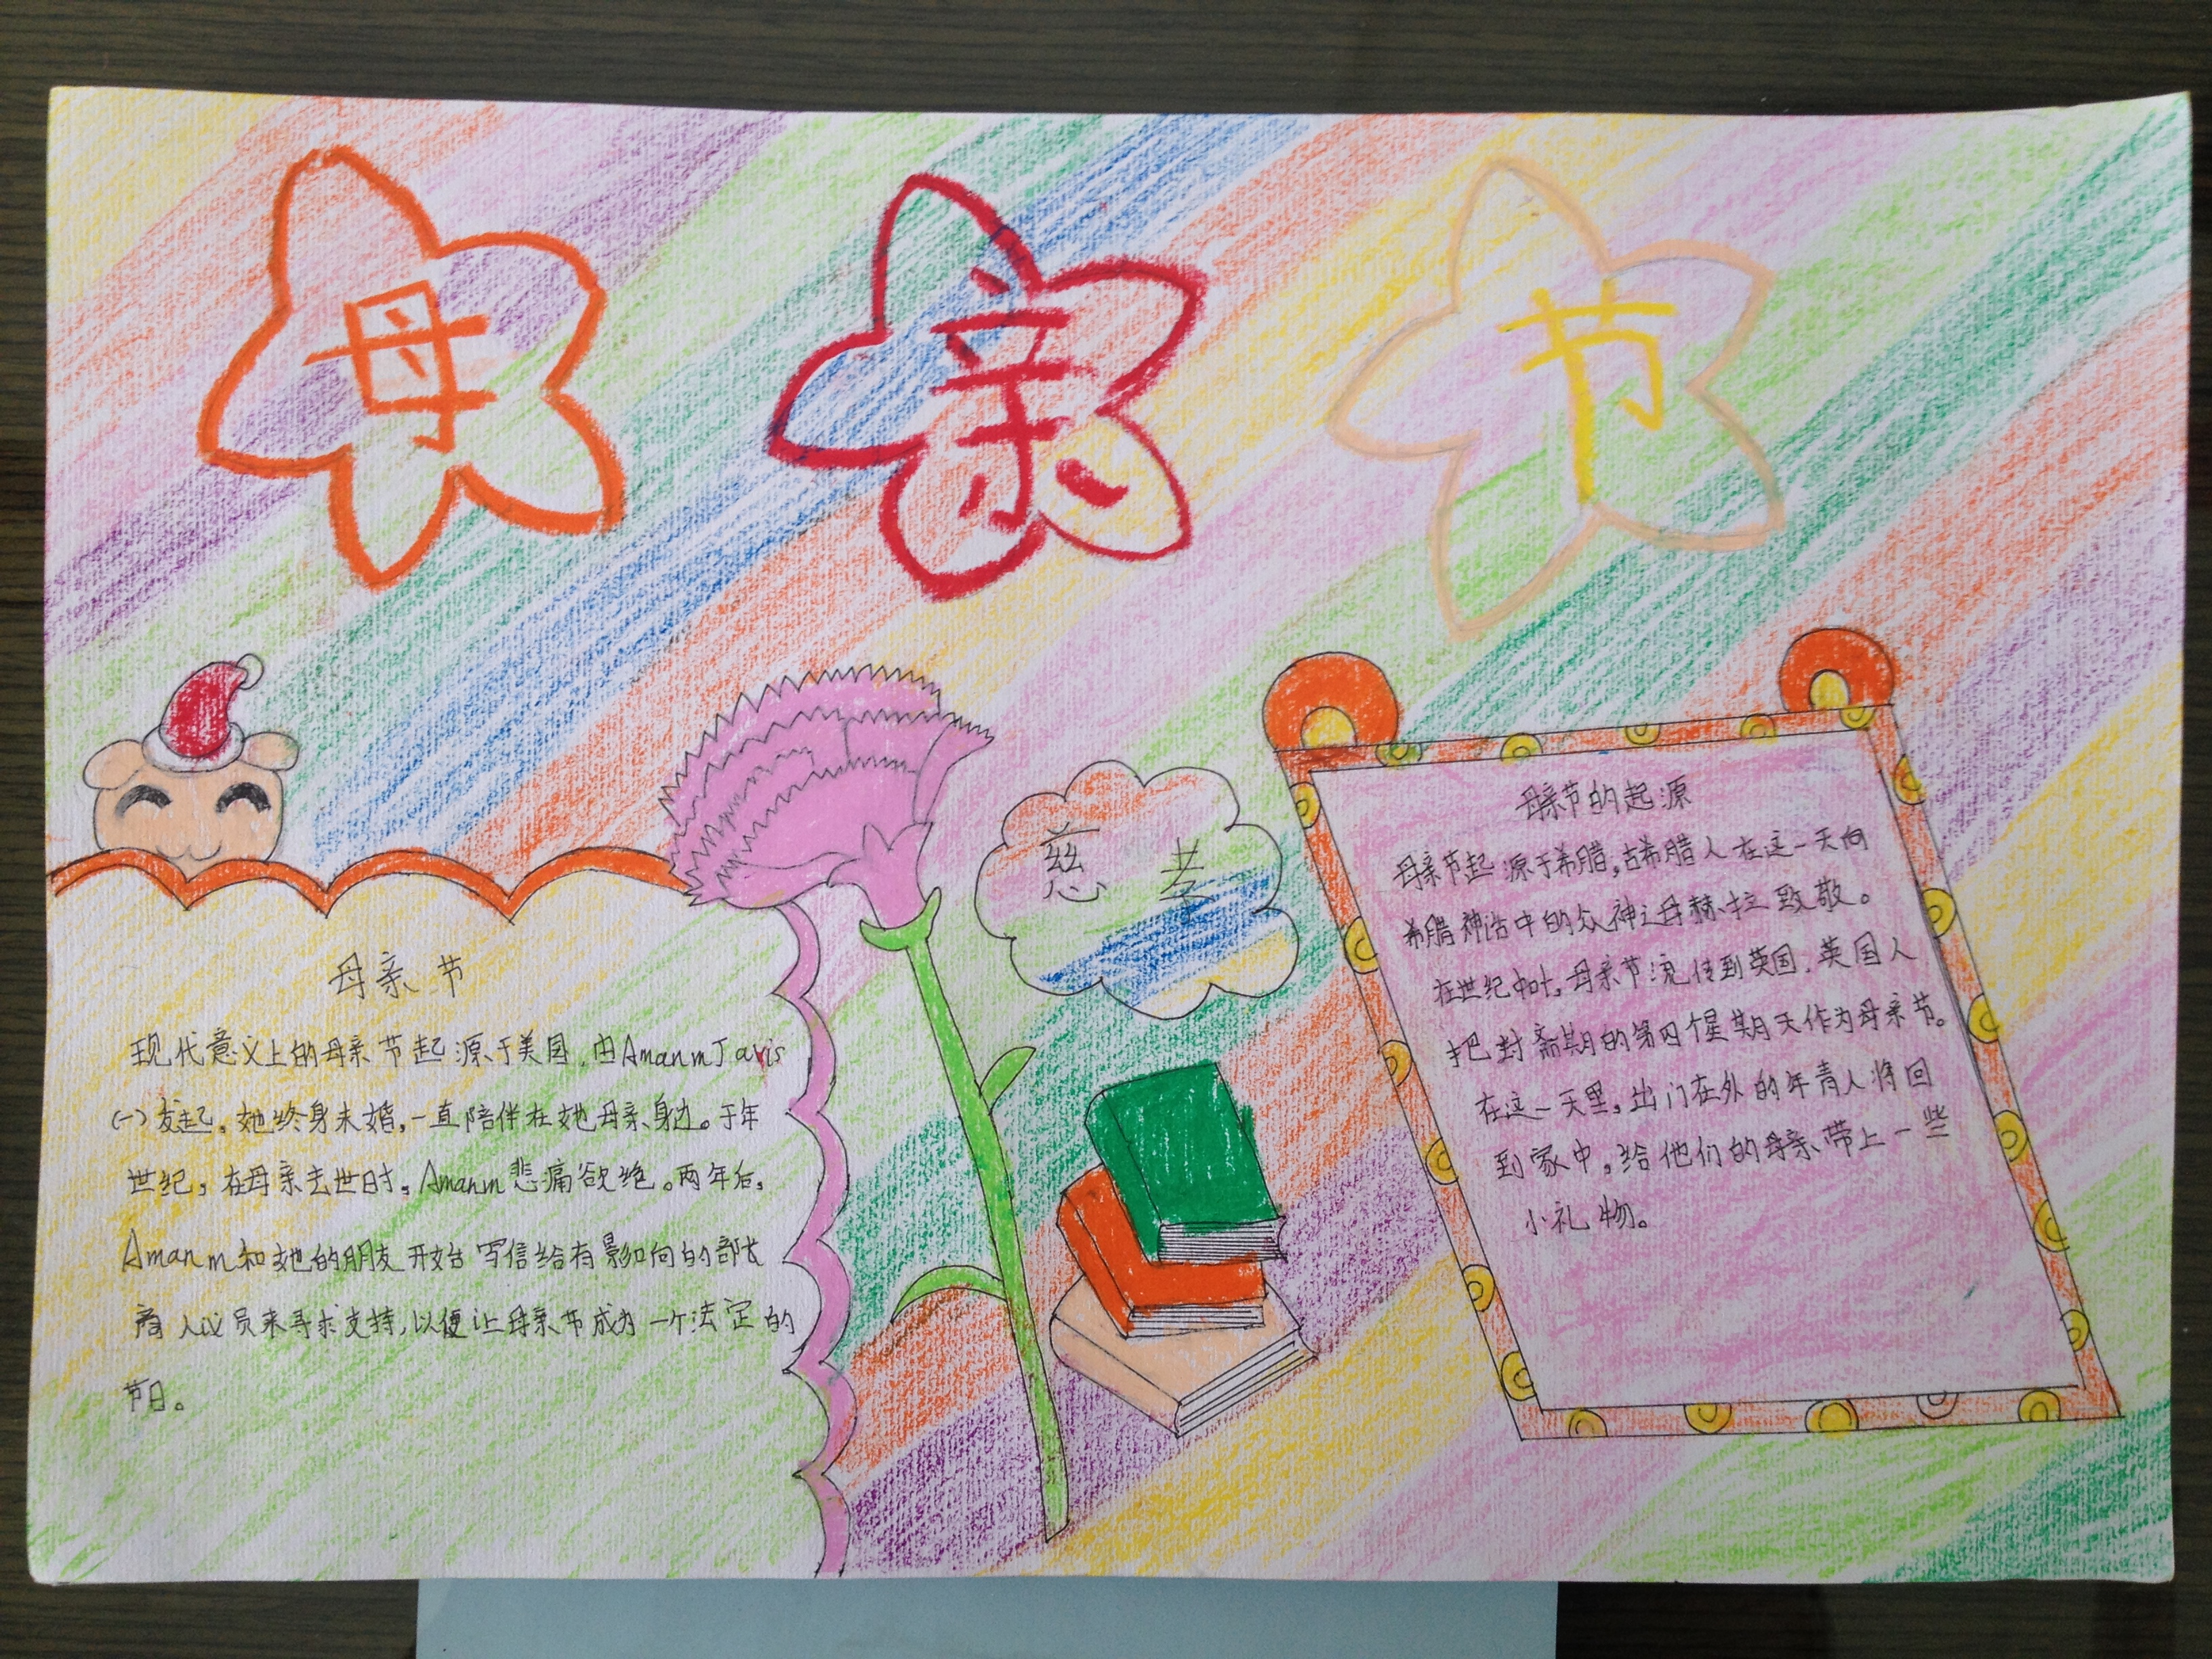 母 亲 节
母亲节
现代意义上的母亲节起源于美国,由AmanmJavis
(一)发起。她终身未婚,一直陪伴在她母亲身边。于年
世纪,在母亲去世时,Amanm悲痛欲绝。两年后,
Amanm和她的朋友开始写信给有影响向的部长
商人议员来寻求支持,以便让母亲节成为一个法定的
节日。
慈 孝
母亲节的起源
母亲节起源于希腊,古希腊人在这一天向
希腊神话中的众神之母赫拉致敬。
在世纪中叶,母亲节流传到英国,英国人
把封斋期的第四个星期天作为母亲节。
在这一天里,出门在外的年青人将回
到家中,给他们的母亲带上一些
小礼物。